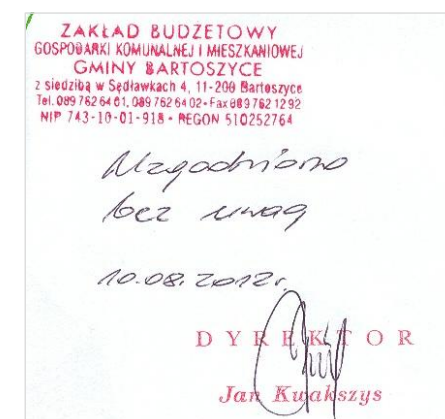 ZAKŁAD BUDŻETOWY
GOSPODARKI KOMUNALNEJ I MIESZKANIOWEJ
GMINY BARTOSZYCE
z siedzibą w Sędławkach 4, 11-200 Bartoszyce
Tel. 089 762 64 01, 089 762 64 02 • Fax 089 762 12 92
NIP 743-10-01-918 • REGON 510252764
Uzgodniono
bez uwag
10.08.2012r.
DYREKTOR
Jan Kwakszys